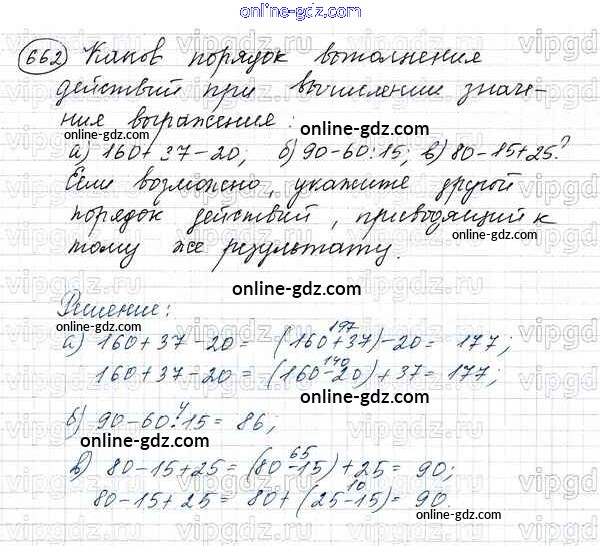 online-gdz.com
662 Каков порядок выполнения
действий при вычислении значе-
ния выражения:
online-gdz.com
а) 160+37-20; б) 90-60:15; в) 80-15+25?
online-gdz.com online-gdz.com
Если возможно, укажите другой
порядок действий, приводящий к
online-gdz.com
тому же результату.
online-gdz.com
Решение:
online-gdz.com
197
а) 160+37-20 = (160+37)-20 = 177;
140
160+37-20 = (160-20)+37 = 177;
online-gdz.com
4
б) 90-60:15 = 86;
online-gdz.com online-gdz.com
65
в) 80-15+25 = (80-15)+25 = 90;
10
80-15+25 = 80+(25-15) = 90.
online-gdz.com online-gdz.com
vipgdz.com